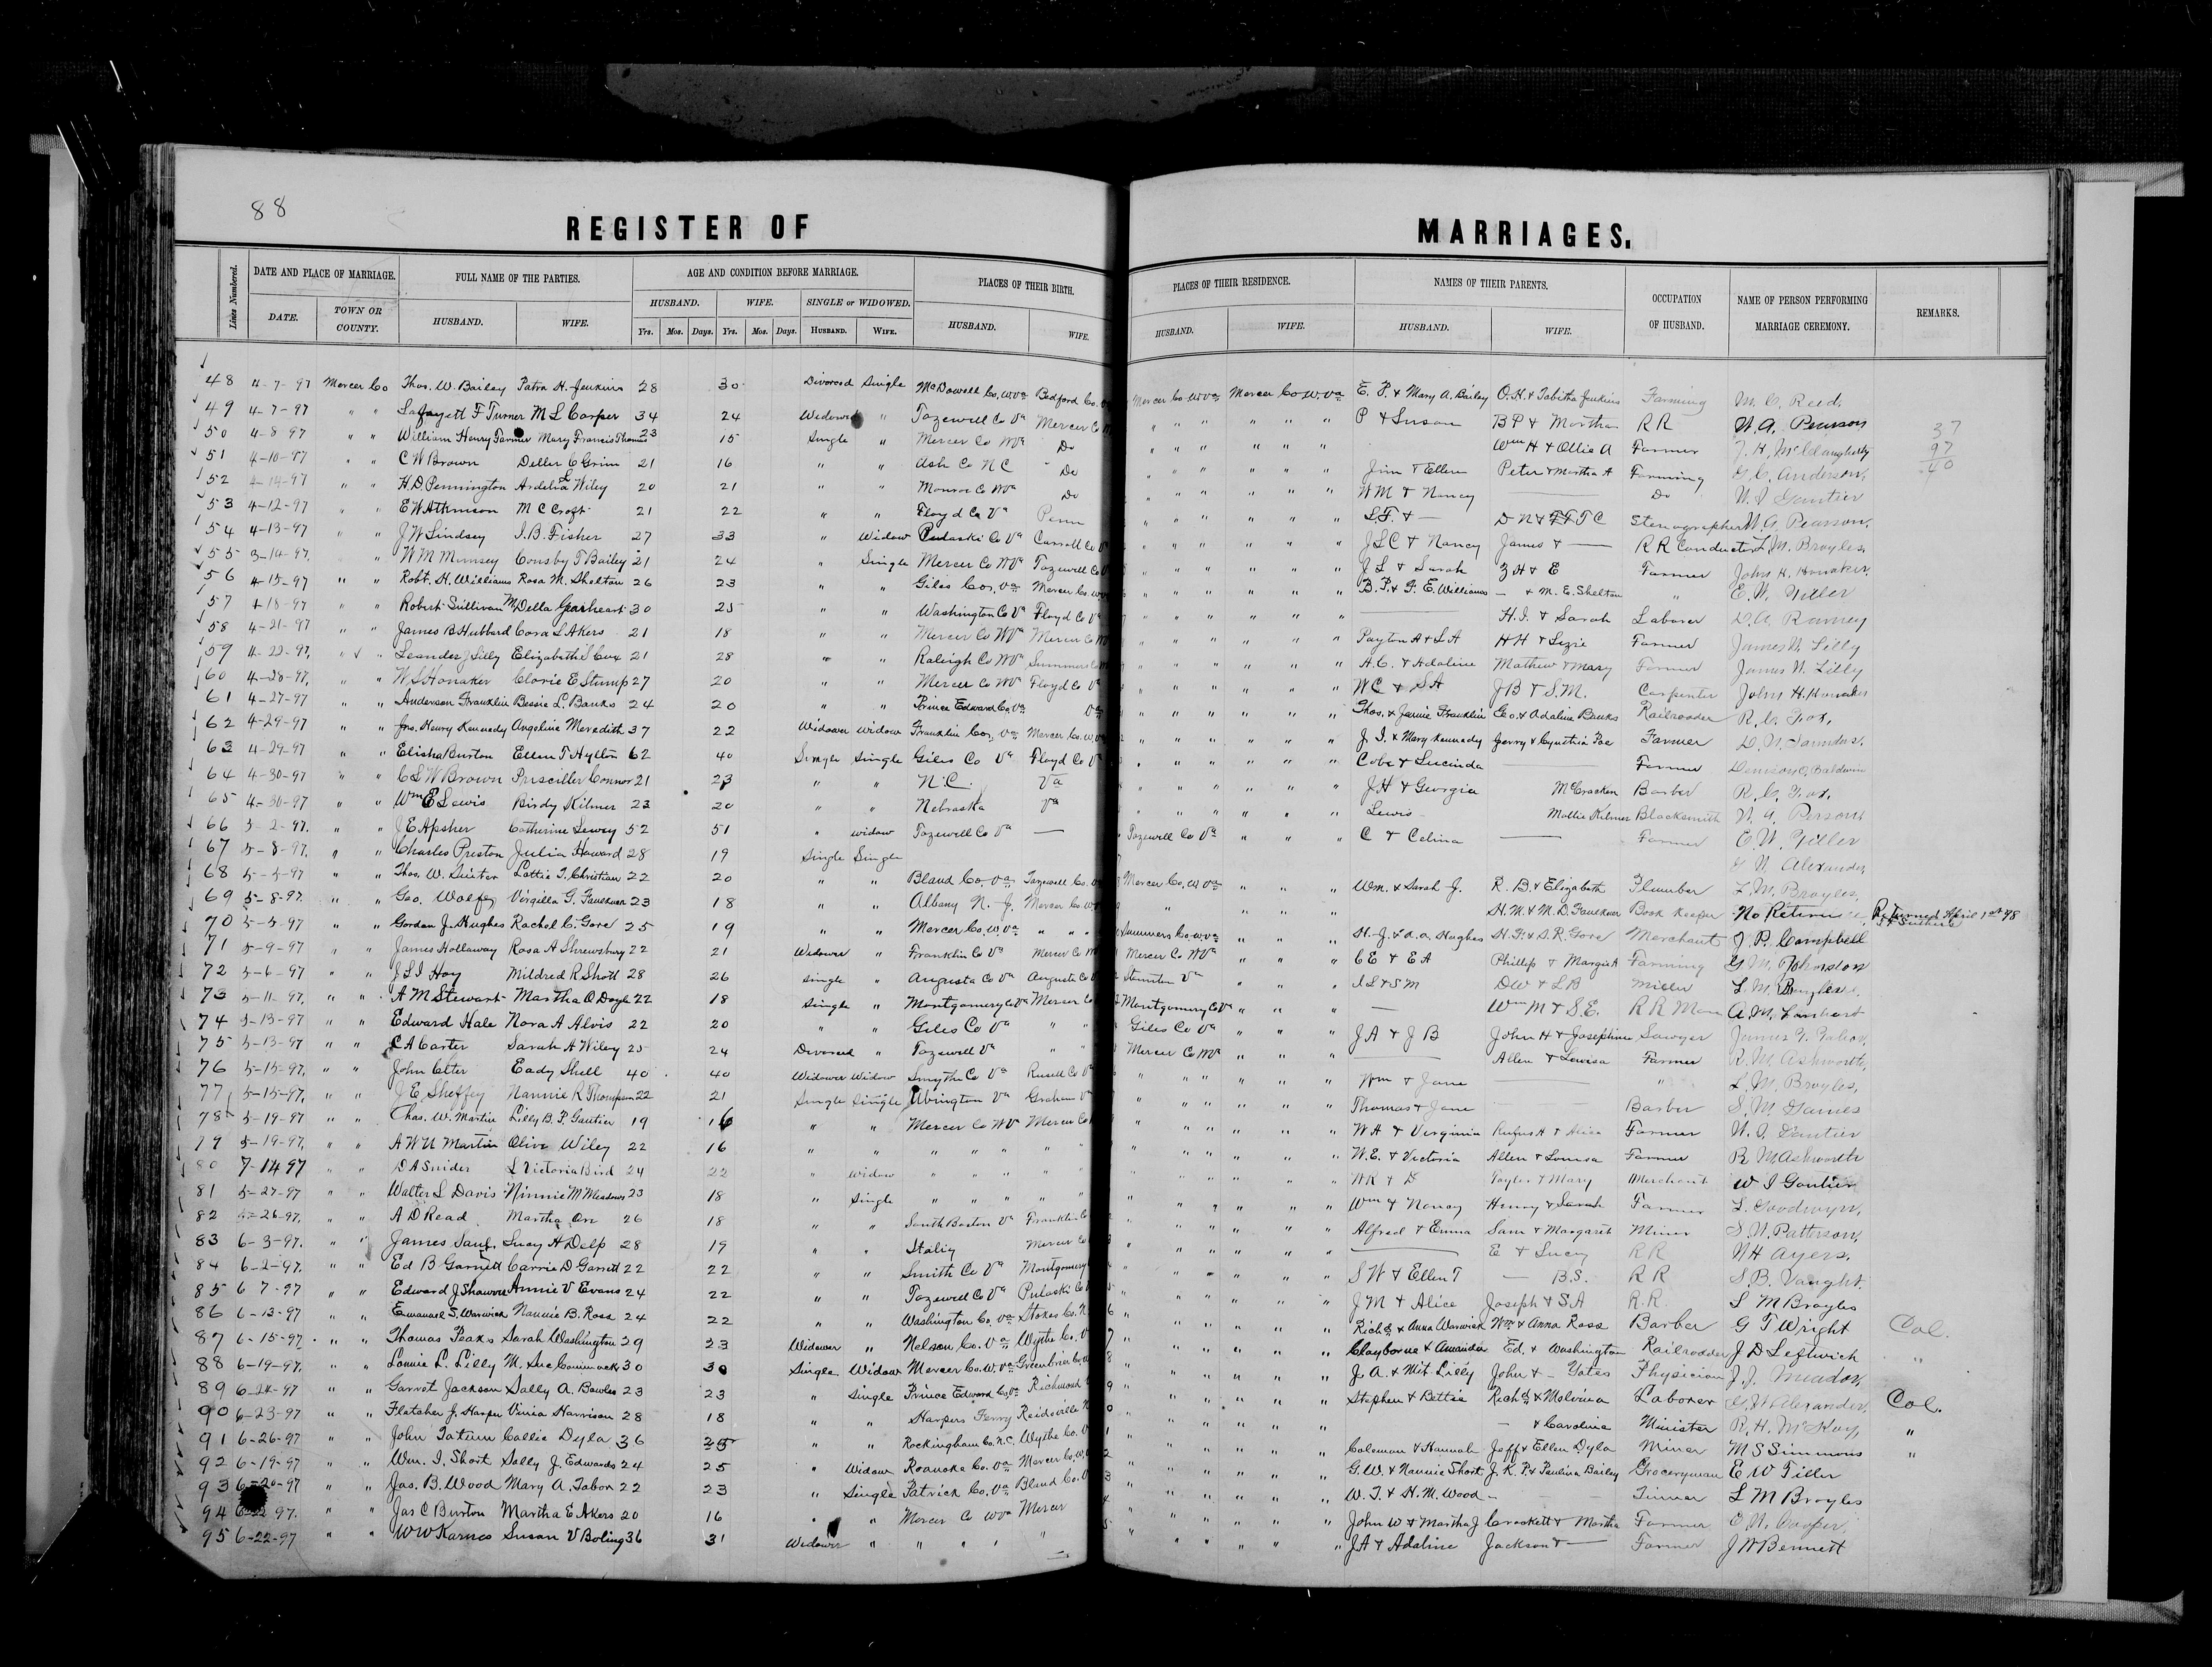 88
REGISTER OF MARRIAGES.
Lines Numbered. DATE AND PLACE OF MARRIAGE. FULL NAME OF THE PARTIES. AGE AND CONDITION BEFORE MARRIAGE. PLACES OF THEIR BIRTH. PLACES OF THEIR RESIDENCE. NAMES OF THEIR PARENTS. OCCUPATION OF HUSBAND. NAME OF PERSON PERFORMING MARRIAGE CEREMONY. REMARKS.
DATE. TOWN OR COUNTY. HUSBAND. WIFE. HUSBAND. WIFE. SINGLE or WIDOWED. HUSBAND. WIFE. HUSBAND. WIFE. HUSBAND. WIFE.
Yrs. Mos. Days. Yrs. Mos. Days. HUSBAND. WIFE.
48 4-7-97 Mercer Co Thos. W. Bailey Patra H. Jenkins 28 30 Divorced Single McDowell Co, W Va Bedford Co. Mercer Co. W Va Mercer Co W. Va E. P. & Mary A. Bailey O. H. & Tabitha Jenkins Farming M. C. Reed.
49 4-7-97 " " Lafayett F Turner M L Carper 34 24 Widower " Tazewell Co Va Mercer Co " " " " " " P & Susan B P & Martha R R W. A. Pearson
50 4-8 97 " " William Henry Farmer Mary Francis Thomas 23 15 Single " Mercer Co W Va Do " " " " " " Wm H & Ollie A Farmer J. H. McClaugherty 37
51 4-10-97 " " C W Brown Deller C Grim 21 16 " " Ash Co N C Do " " " " " " Jim & Ellen Peter & Martha A Farming G. C. Anderson, 97
52 4-14-97 " " H. D. Pennington Ardelia E Wiley 20 21 " " Monroe Co W Va Do " " " " " " W M & Nancy — Do W. I. Gautier 40
53 4-12-97 " " E W Atkinson M C Croft 21 22 " " Floyd Co Va Penn " " " " " " L F. & — D N & T C Stenographer W. A. Pearson,
54 4-13-97 " " J W Lindsey I. B. Fisher 27 33 " Widow Pulaski Co Va Carroll Co V " " " " " " J L C & Nancy James & — R R Conductor L. M. Broyles,
55 3-14-97, " " W M Munsey Consby T Bailey 21 24 " Single Mercer Co W Va Tazewell Co " " " " " " J L & Sarah Z H & E Farmer John H. Honaker.
56 4-15-97 " " Robt. H. Williams Rosa M. Shelton 26 23 " " Giles Co, Va Mercer Co. W " " " " " " B. P. & F. E. Williams — & M. E. Shelton " E. W. Tiller
57 4-18-97 " " Robert Sullivan My Della Gearheart 30 25 " " Washington Co Va Floyd Co V " " " " " " — H. I. & Sarah Laborer D. A. Ramsey
58 4-21-97 " " James B Hubbard Cora L Akers 21 18 " " Mercer Co W Va Mercer Co " " " " " " Payton A & L A H H & Lizzie Farmer James W. Lilly
59 4-22-97, " " Leander J Lilly Elizabeth S Cox 21 28 " " Raleigh Co W Va Summers Co " " " " " " A. C. & Adaline Mathew & Mary Farmer James W. Lilly
60 4-28-97, " " W S Honaker Clorie E Stump 27 20 " " Mercer Co W Va Floyd Co V " " " " " " W C & S A J B & S. M. Carpenter John H. Honaker
61 4-27-97 " " Anderson Franklin Bessie L. Banks 24 20 " " Prince Edward Co, Va Va " " " " " " Thos. & Jamie Franklin Geo. & Adaline Banks Railroader R. C. Fox,
62 4-29-97 " " Jno. Henry Kennedy Angeline Meredith 37 22 Widower Widow Franklin Co, Va Mercer Co. W " " " " " " J. I. & Mary Kennedy Gerry & Cynthia Poe Farmer D. N. Saunders.
63 4-29-97 " " Elisha Burton Ellen T Hylton 62 40 Single Single Giles Co Va Floyd Co V " " " " " " Cobe & Lucinda — Farmer Denison Q. Baldwin
64 4-30-97 " " C L W Brown Prisciller Connor 21 23 " " N. C. Va " " " " " " J H & Georgia McCracken Barber R. C. Fox,
65 4-30-97 " " Wm E Lewis Birdy Kilmer 23 20 " " Nebraska Va " " " " " " Lewis Mollie Kilmer Blacksmith W. A Persons
66 5-2-97. " " J E Apsher Catherine Lewey 52 51 " widow Tazewell Co Va — Tazewell Co Va " " " C & Celina — Farmer E. W. Tiller
67 5-8-97, " " Charles Preston Julia Howard 28 19 Single Single G. W. Alexander,
68 5-5-97 " " Thos. W. Suiter Lottie T. Christian 22 20 " " Bland Co, Va Tazewell Co. V Mercer Co, W Va " " " Wm. & Sarah J. R. B. & Elizabeth Plumber L. M. Broyles,
69 5-8-97. " " Geo. Wolfe Virgilla G. Faulkner 23 18 " " Albany N. J. Mercer Co. W " " " " H. M. & M. D. Faulkner Book Keeper No Returns Returned April 1st 98
70 5-5-97 " " Gordon J. Hughes Rachel C. Gore 25 19 " " Mercer Co, W. Va " " " Summers Co, W. Va " " " H. J. & A. A. Hughes H. P. & S. R. Gore Merchant J. P. Campbell
71 5-9-97 " " James Hollaway Rosa A Shrewsbury 22 21 Widower " Franklin Co Va Mercer Co W Mercer Co W Va " " " C E & E A Phillip & Margie A Farming G. W. Johnston
72 5-6-97 " " J L I Hoy Mildred R Shott 28 26 single " Augusta Co Va Augusta Co V Staunton Va " " " I L & S M D W & L B Miller L. M. Broyles.
73 5-11-97, " " A M Stewart Martha O Doyle 22 18 Single " Montgomery Co Va Mercer Co Montgomery Co Va " " " — Wm M & S. E. R R Man A. M. Earnhart
74 5-13-97 " " Edward Hale Nora A Alvis 22 20 " " Giles Co Va " " Giles Co Va " " " J A & J B John H & Josephine Sawyer
75 5-13-97 " " C A Carter Sarah A Wiley 25 24 Divorced " Tazewell Va " " Mercer Co W Va " " " — Allen & Louisa Farmer R. M. Ashworth,
76 5-15-97, " " John Elter Eady Shell 40 40 Widower Widow Smythe Co Va Rusell Co V " " " " " " Wm & Jane — " L. M. Broyles,
77 5-15-97, " " J. E. Sheffey Nannie R Thompson 22 21 Single Single Abington Va Graham V " " " " " " Thomas & Jane — Barber S. M Gaines
78 5-19-97 " " Chas. W. Martin Lilly B. P. Gautier 19 16 " " Mercer Co W V Mercer Co " " " " " " W A & Virginia Rufus A & Alice Farmer W. I. Gautier
79 5-19-97, " " A W N Martin Olive Wiley 22 16 " " " " " " " " " " " " " " W. E. & Victoria Allen & Louisa Farmer R M Ashworth
80 7-14 97 " " D A Snider L Victoria Bird 24 22 " widow " " " " " " " " " " " " W R & D Taylor & Mary Merchant W I Gautier
81 5-27-97 " " Walter L Davis Ninnie M Meadows 23 18 " Single " " " " " " " " " Wm & Nancy Henry & Sarah Farmer L. Goodwyn,
82 5-26-97, " " A D Read Martha Orr 26 18 " " South Boston Va Franklin Co " " " " " Alfred & Emma Sam & Margaret Miner S. W. Patterson,
83 6-3-97. " " James Sauf. Lucy A Delp 28 19 " " Italiy Mercer Co " " " " " — E & Lucy R R W H Ayers.
84 6-2-97. " " Ed B Garnett Carrie D Garrett 22 22 " " Smith Co Va Montgomery " " " " " S W & Ellen T — B. S. R R S. B. Vaught.
85 6 7-97 " " Edward J Shawver Annie V Evans 24 22 " " Tazewell Co Va Pulaski Co " " " " " J M & Alice Joseph & S. A R. R. L M Broyles
86 6-13-97 " " Emanuel S. Warwick Nannie B. Ross 24 22 " " Washington Co, Va Stokes Co. N. " " " " " Richd & Anna Warwick Wm & Anna Ross Barber G T Wright Col.
87 6-15-97 " " Thomas Peaks Sarah Washington 29 23 Widower " Nelson Co. Va Wythe Co. V " " " " " Clayborne & Amanda Ed. & Washington Railroader J D Leftwich "
88 6-19-97, " " Lonnie L. Lilly M. Sue Cammack 30 30 Single Widow Mercer Co. W. Va Greenbrier Co. W " " " " " J. A. & Mit. Lilly John & — Yates Physician J. J. Meador,
89 6-24-97 " " Garret Jackson Sally A. Bowles 23 23 " Single Prince Edward Co, Va Richmond " " " " " Stephen & Bettie Richd & Melvina Laborer G. W. Alexander. Col.
90 6-23-97 " " Fletcher J. Harper Vinia Harrison 28 18 " " Harpers Ferry Reidsville N " " " " " — & Caroline Minister R. H. McKoy "
91 6-26-97 " " John Tatum Callie Dyla 36 25 " " Rockingham Co. N. C. Wythe Co. V " " " " " Coleman & Hannah Jeff & Ellen Dyla Miner M S Simmons "
92 6-19-97 " " Wm. I. Short Sally J. Edwards 24 25 " Widow Roanoke Co. Va Mercer Co, W. " " " " " G. W. & Nannie Short J. K. P. & Paulina Bailey Groceryman E W Tiller
93 6-20-97 " " Jas. B. Wood Mary A. Tabor 22 23 " Single Patrick Co. Va Bland Co. V " " " " " W. T. & H. M. Wood — Tinner L M Broyles
94 6-22 97. " " Jas C Burton Martha E Akers 20 16 " " Mercer Co W Va Mercer " " " " " John W & Martha J Crockett & Martha Farmer E. W. Cooper.
95 6-22-97 " " W W Karnes Susan V Boling 36 31 Widower " " " " " " " " " " J A & Adaline Jackson & — Farmer J W Bennett